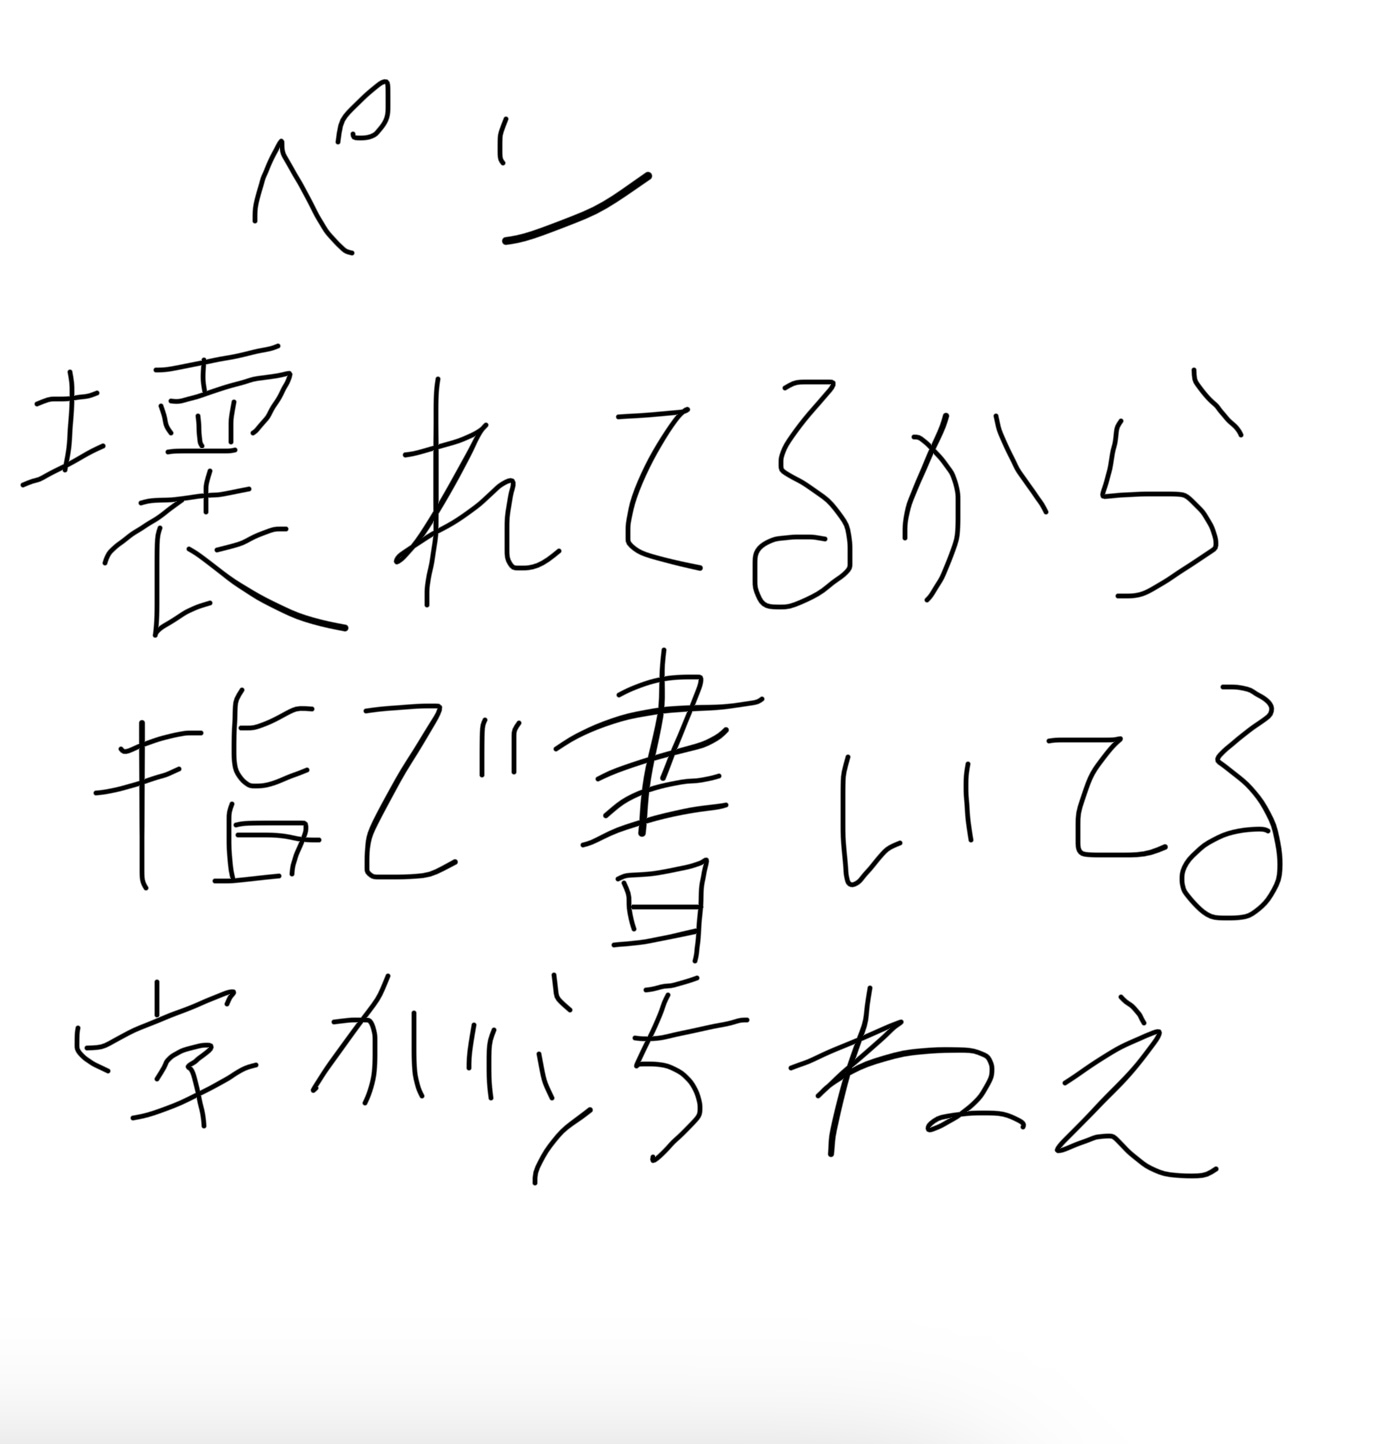 ペン
壊れてるから
指で書いてる
字が汚ねえ